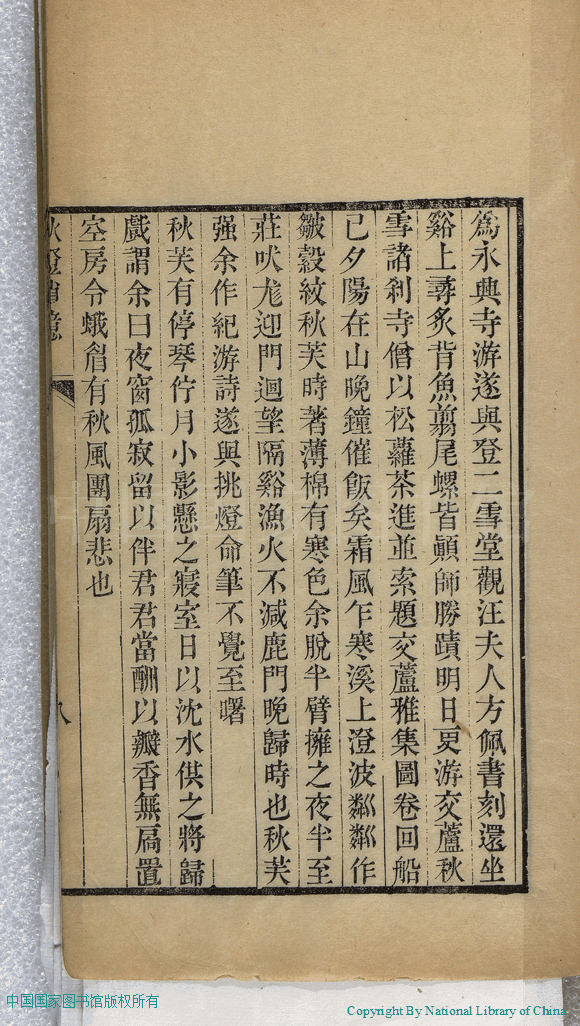 爲永興寺游遂與登二雪堂觀汪夫人方佩書刻還坐
谿上尋炙背魚翦尾螺皆顚師勝蹟明日更游交蘆秋
雪諸刹寺僧以松蘿茶進並索題交蘆雅集圖卷回船
已夕陽在山晚鐘催飯矣霜風乍寒溪上澄波粼粼作
皺縠紋秋芙時著薄棉有寒色余脫半臂擁之夜半至
莊吠尨迎門迴望隔谿漁火不減鹿門晚歸時也秋芙
强余作紀游詩遂與挑燈命筆不覺至曙
秋芙有停琴佇月小影懸之寢室日以沈水供之將歸
戲謂余曰夜窗孤寂留以伴君君當酬以瓣香無扃置
空房令蛾眉有秋風團扇悲也
秋鐙瑣憶
八
中国国家图书馆版权所有
Copyright By National Library of China